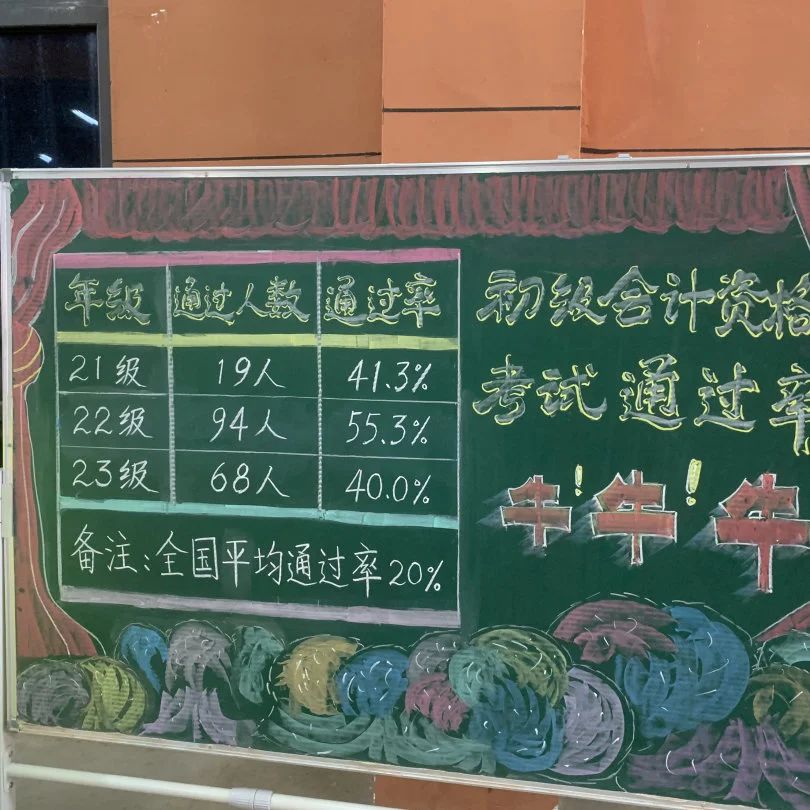 年级 通过人数 通过率
21级 19人 41.3%
22级 94人 55.3%
23级 68人 40.0%
备注:全国平均通过率20%
初级会计资格
考试通过率
牛!牛!牛